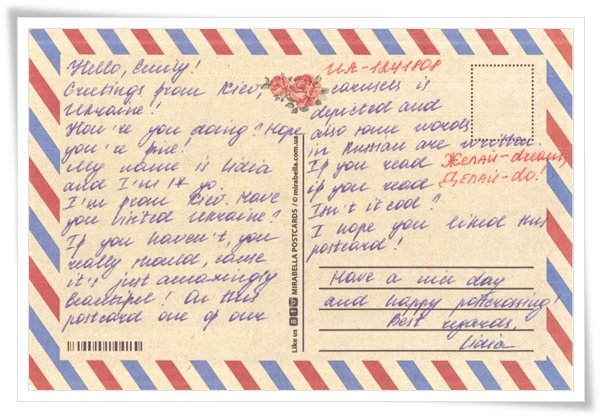 Hello, Emily!
Greetings from Kiev,
Ukraine!
How're you doing? Hope
you're fine!
My name is Lidia
and I'm 17 yo.
I'm from Kiev. Have
you visited Ukraine?
If you haven't, you
really should, cause
it's just amazingly
beautiful! On this
postcard one of our
UA-1241808
carusels is
depicted and
also some words
in Russian are written.
If you read Желай-dream,
if you read Делай-do!
Isn't it cool?
I hope you liked this
postcard!
Have a nice day
and happy postcrossing!
Best regards,
Lidia
Like us MIRABELLA POSTCARDS / © mirabella.com.ua